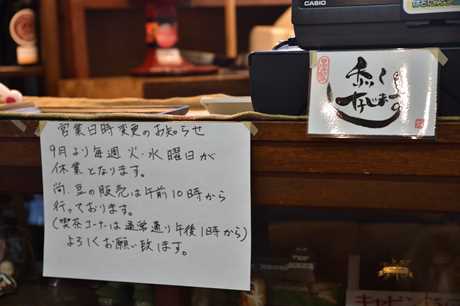 CASIO
営業日時変更のお知らせ
9月より毎週 火・水 曜日が
休業となります。
尚、豆の販売は午前10時から
行っております。
(喫茶コーナーは通常通り午後1時から)
よろしくお願い致します。